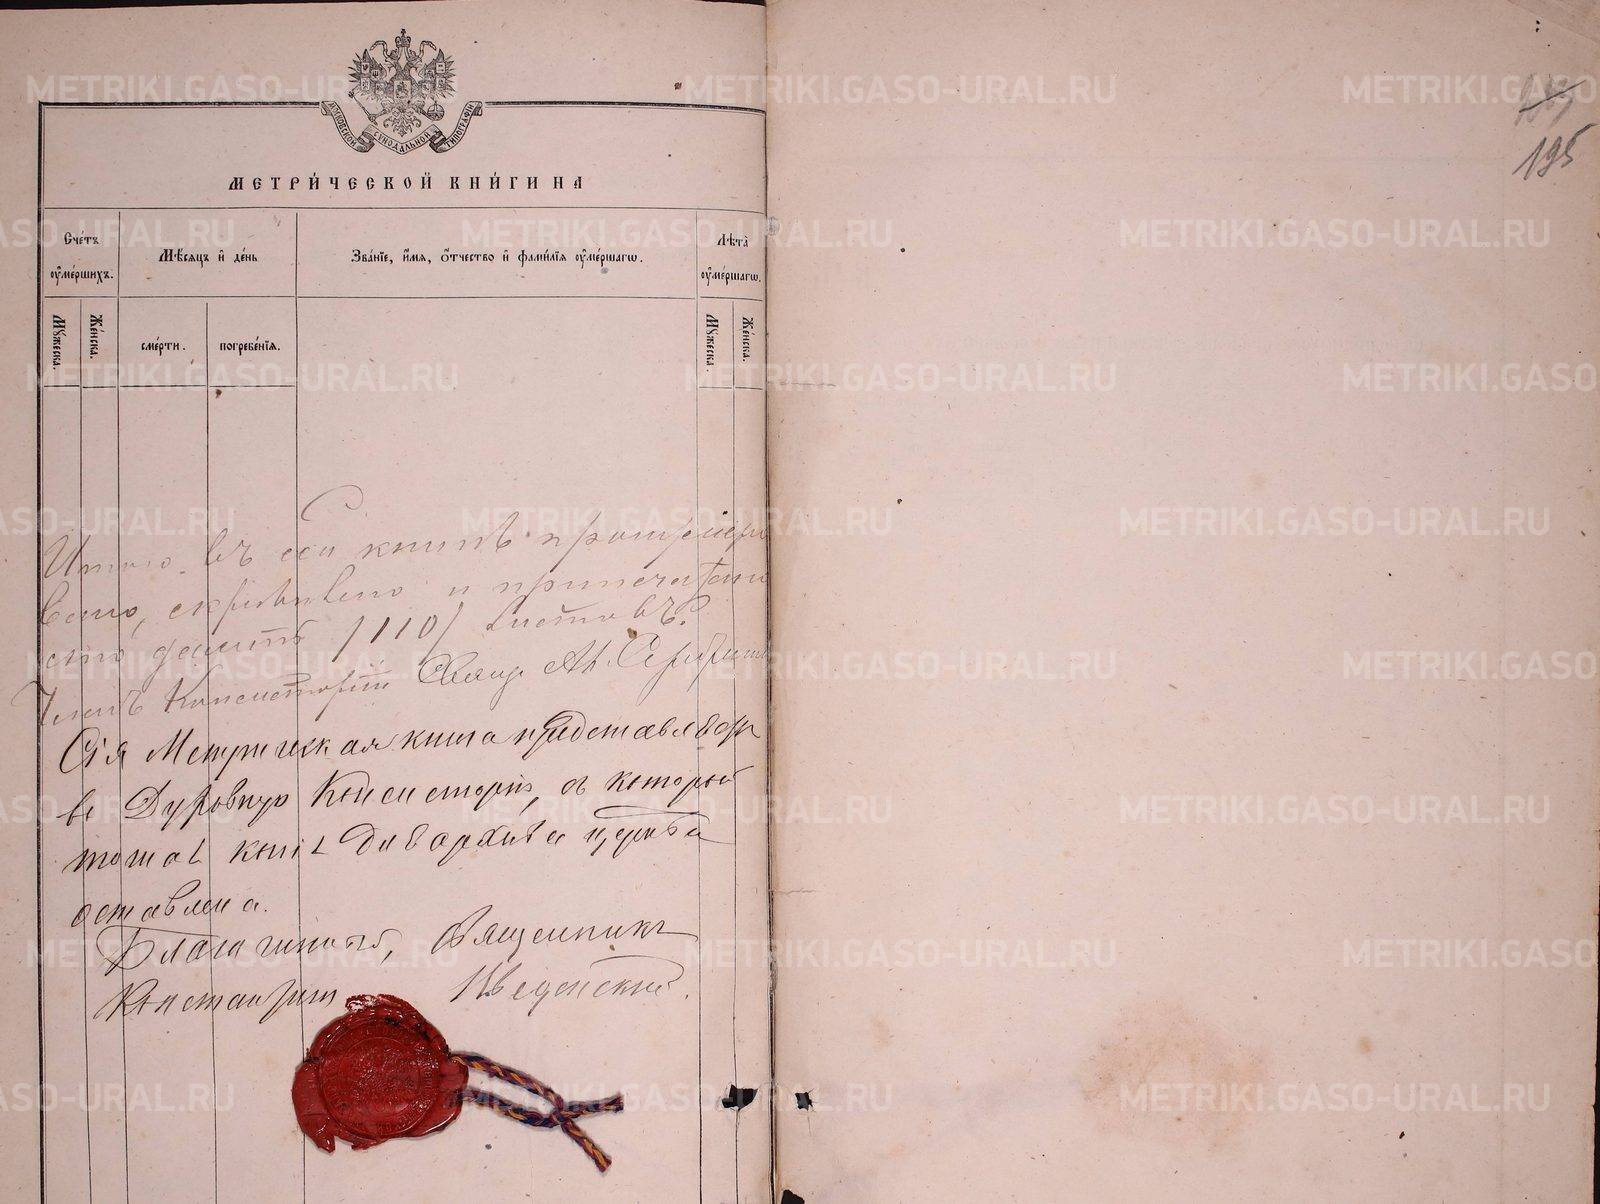 METRIKI.GASO-URAL.RU
МОСКОВСКОЙ СѴНОДАЛЬНОЙ ТИПОГРАФІИ
МЕТРИ́ЧЕСКОЙ КНИ́ГИ НА
Сче́тъ оу҆ме́ршихъ.
Мѣ́сяцъ и҆ де́нь
Зва́нїе, и҆́мя, ѻ҆́тчество и҆ фами́лїя оу҆ме́ршагѡ.
Лѣ́та оу҆ме́ршагѡ.
Мꙋ́жеска.
Же́нска.
сме́рти.
погребе́нїя.
Мꙋ́жеска.
Же́нска.
Итого въ сей книгѣ прошнуро
вано, скрѣплено и припечатано
сто десять /110/ листовъ.
Членъ Консисторіи Свящ.
Сія Метрическая книга
въ Духовную Консисторію, съ которой
архивѣ церкви
оставлена.
Благочинный, Священникъ
Константинъ Введенскій.
195